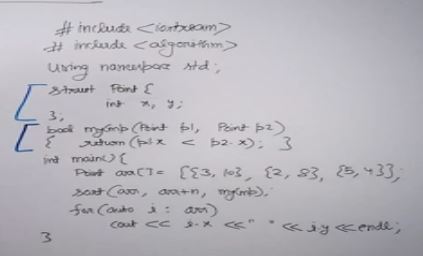 # include <iostream>
# include <algorithm>
Using namespace std;
struct Point {
int x, y;
};
bool myCmp (Point p1, Point p2)
{ return (p1.x < p2.x); }
int main() {
Point arr[] = {{3, 10}, {2, 8}, {5, 4}};
sort (arr, arr+n, myCmp);
for (auto i : arr)
cout << i.x << " " << i.y << endl;
}